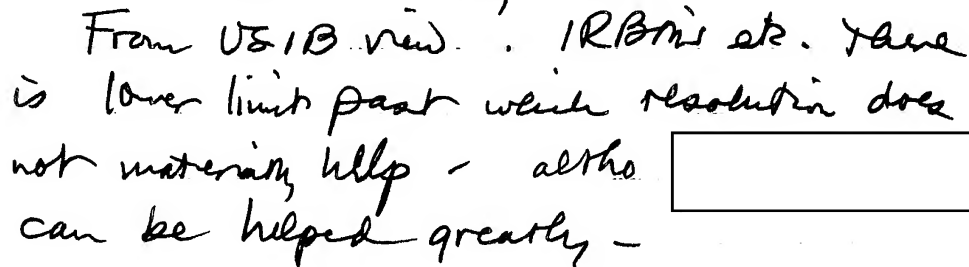 From USIB view. IRBM's etc. there
is lower limit past which resolution does
not materially help - altho
can be helped greatly -